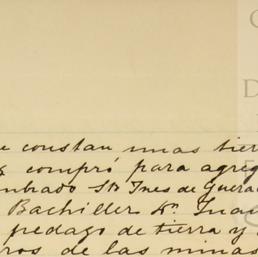 e constan unas tier
compró para agreg
mbrado Sta Ines de Guera
Bachiller Dn. Juan
pedago de tierra y
ros de las minas